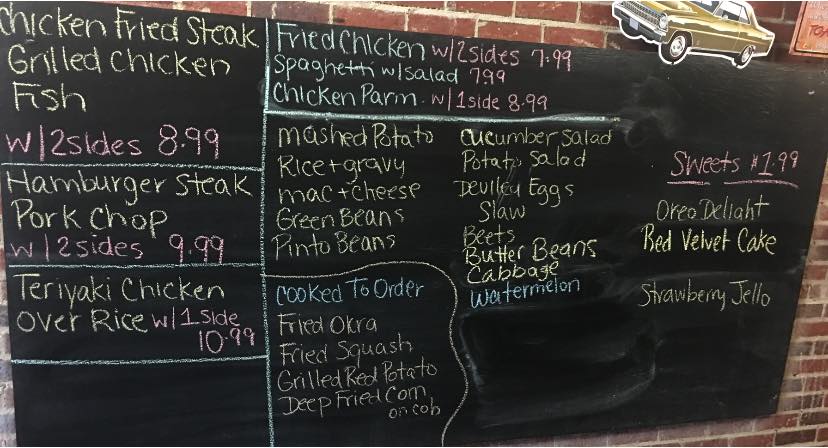 Chicken Fried Steak
Grilled Chicken
Fish
w/2sides 8.99
Hamburger Steak
Pork Chop
w/2sides 9.99
Teriyaki Chicken
Over Rice w/1side
10.99
Fried Chicken w/2sides 7.99
Spaghetti w/salad 7.99
Chicken Parm w/1side 8.99
Mashed Potato
Rice+gravy
mac+cheese
Green Beans
Pinto Beans
Cooked To Order
Fried Okra
Fried Squash
Grilled Red Potato
Deep Fried Corn
on cob
Cucumber Salad
Potato Salad
Deviled Eggs
Slaw
Beets
Butter Beans
Cabbage
Watermelon
Sweets $1.99
Oreo Delight
Red Velvet Cake
Strawberry Jello